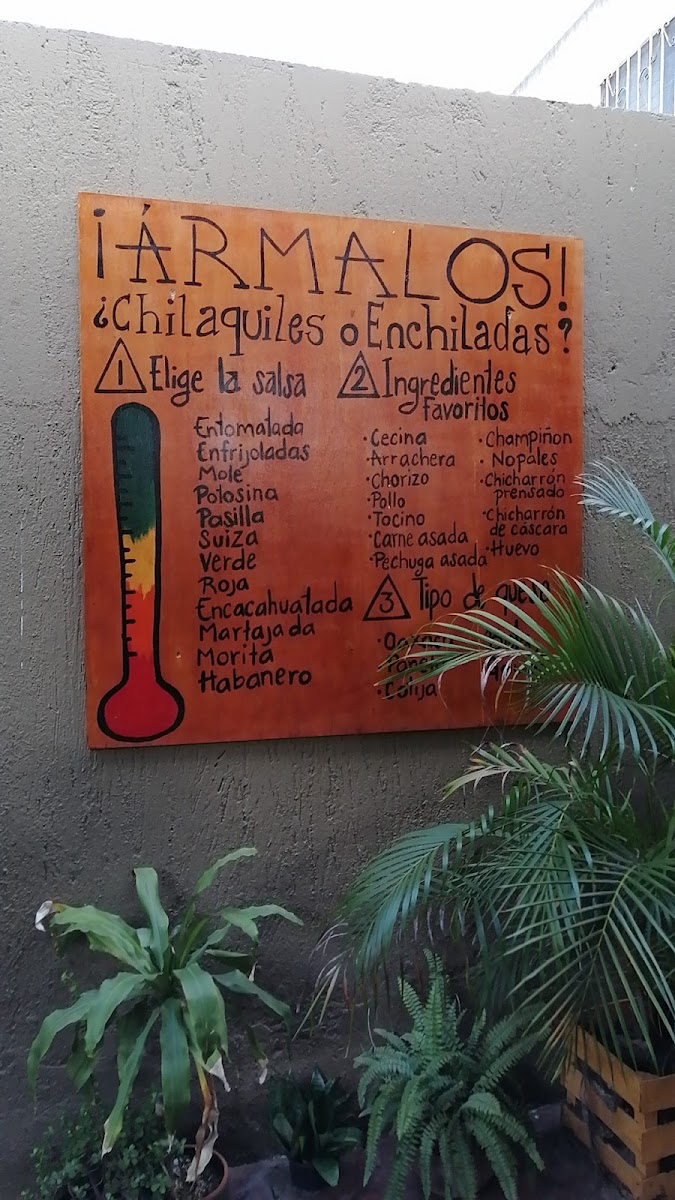 ¡ÁRMALOS!
¿Chilaquiles o Enchiladas?
1 Elige la salsa
Entomatada
Enfrijoladas
Mole
Potosina
Pasilla
Suiza
Verde
Roja
Encacahuatada
Martajada
Morita
Habanero
2 Ingredientes
favoritos
· Cecina
· Arrachera
· Chorizo
· Pollo
· Tocino
· Carne asada
· Pechuga asada
· Champiñon
· Nopales
· Chicharrón
prensado
· Chicharrón
de cáscara
· Huevo
3 Tipo de queso
· Oaxaca
· Cotija